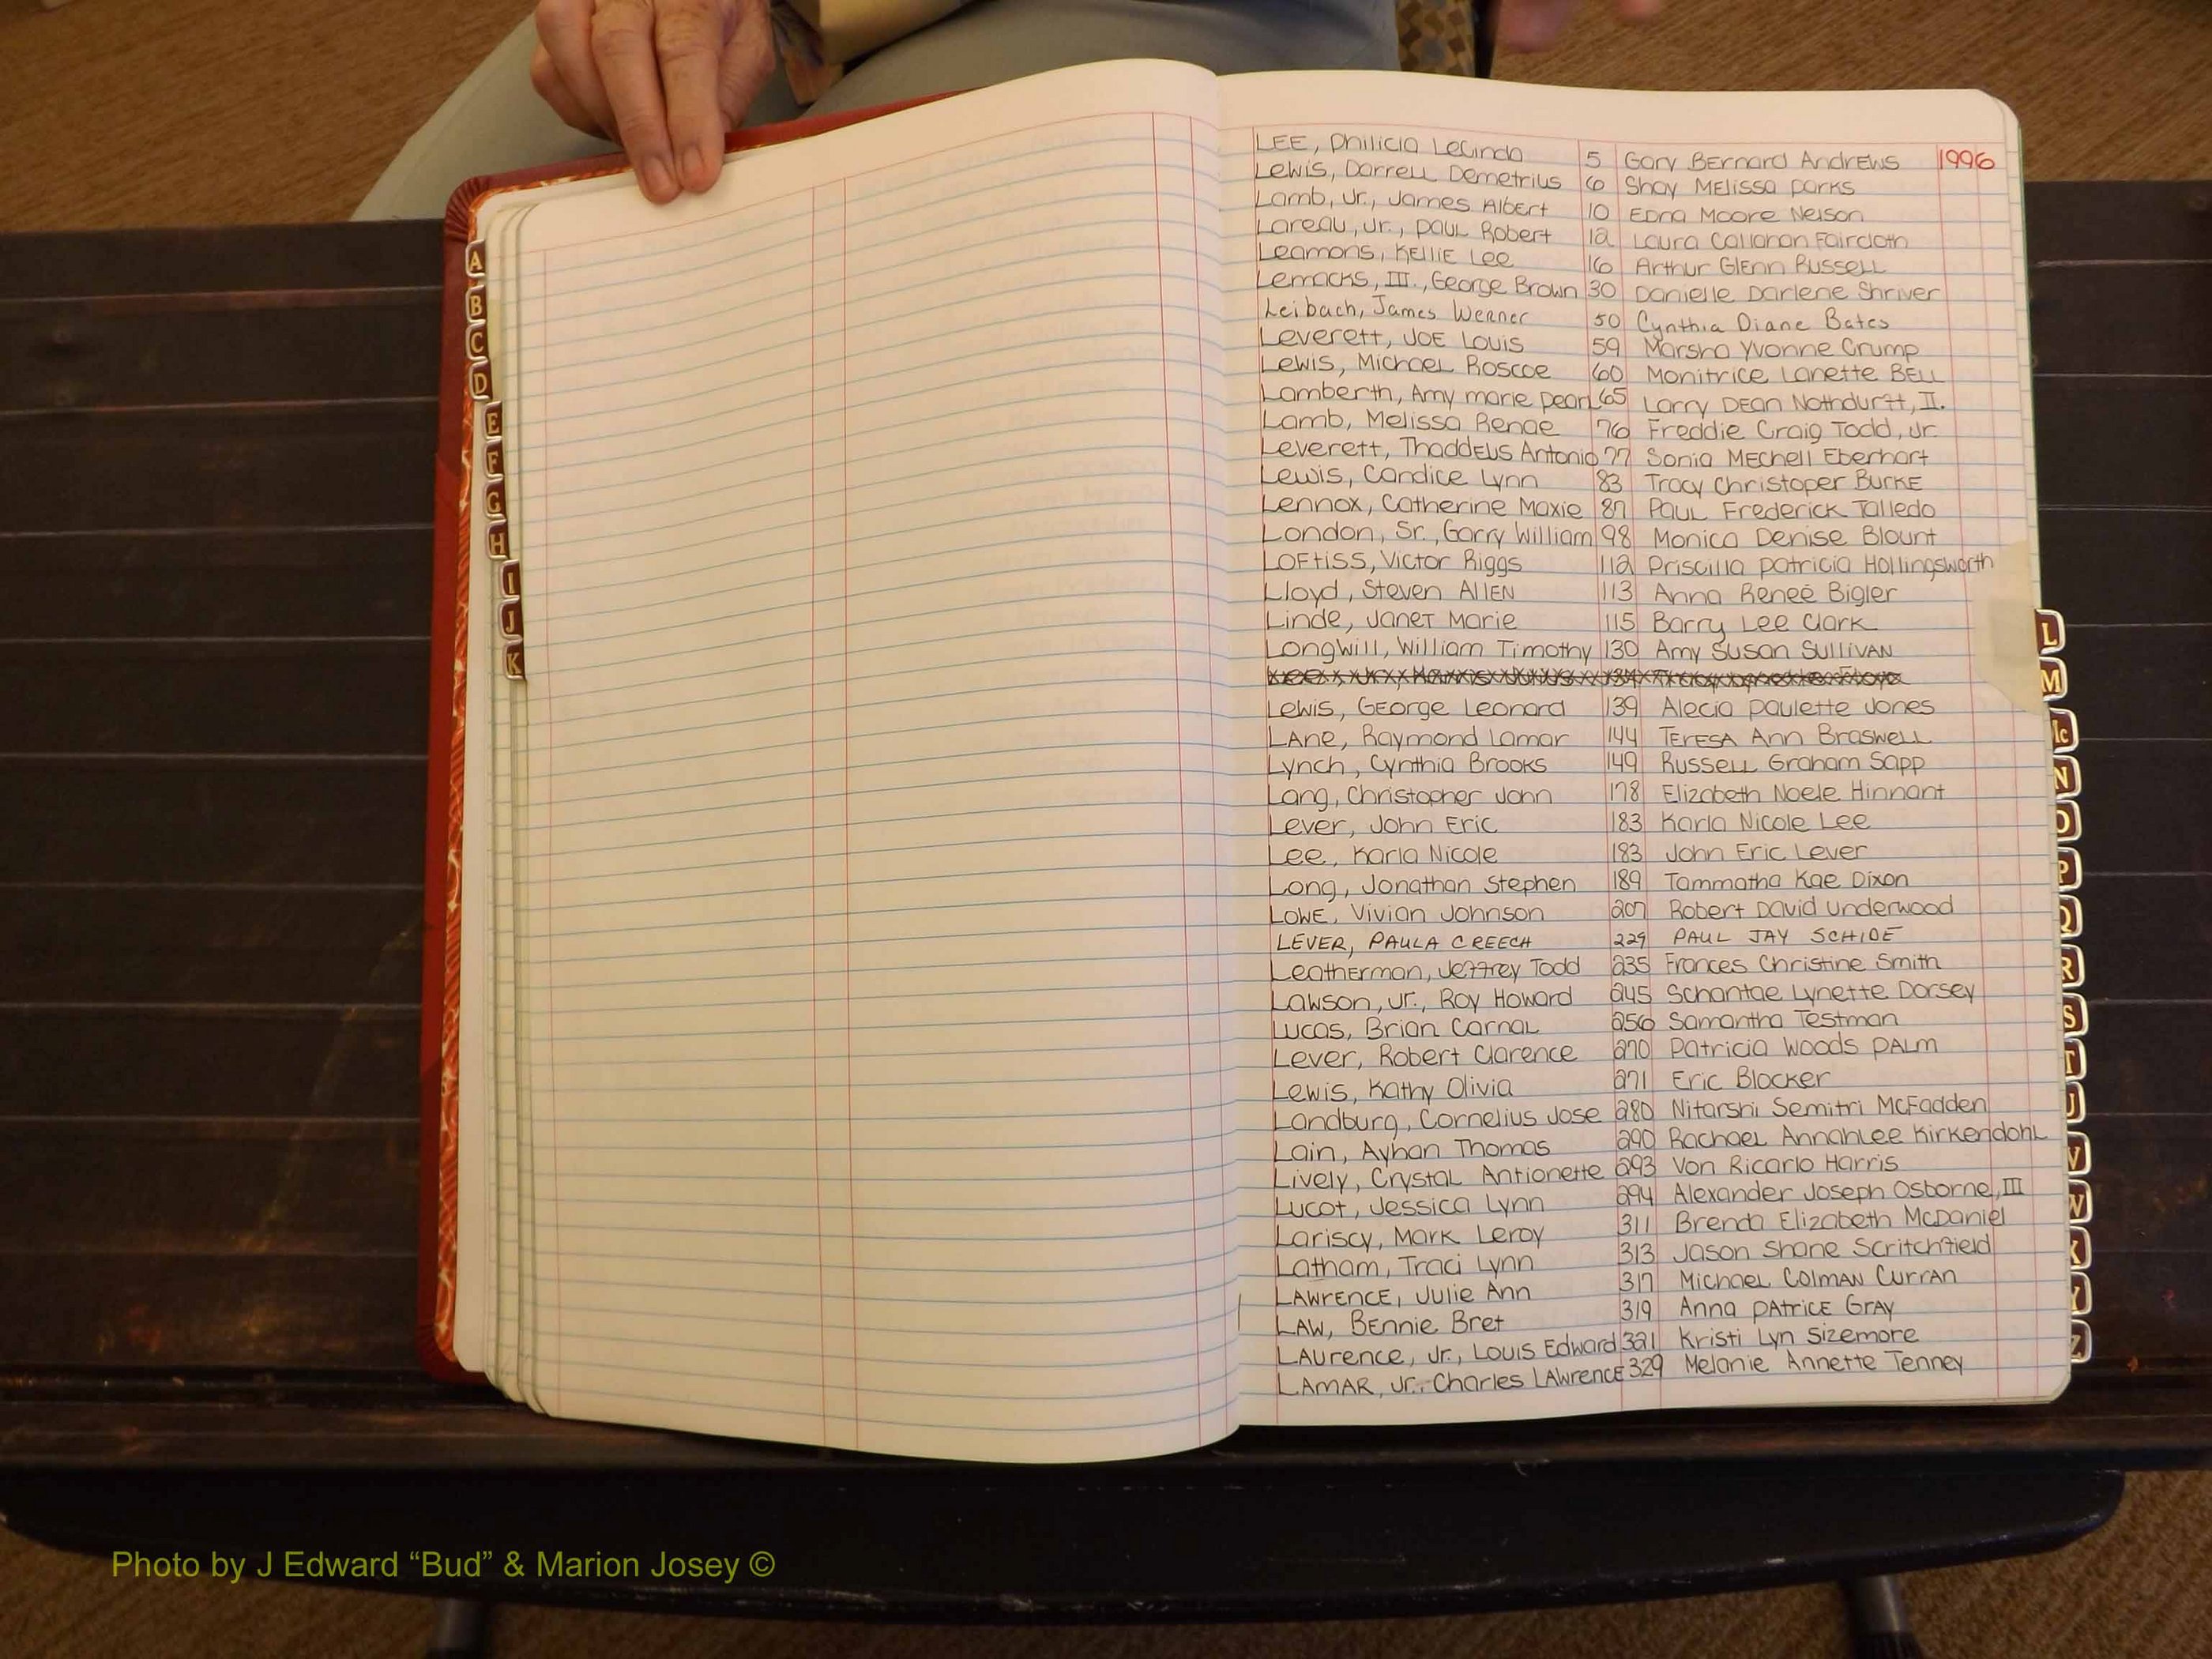 A
B
C
D
E
F
G
H
I
J
K
LEE, Philicia LeCinda 5 Gary Bernard Andrews 1996
Lewis, Darrell Demetrius 6 Shay Melissa Parks
Lamb, Jr., James Albert 10 Edna Moore Nelson
Lareau, Jr., Paul Robert 12 Laura Callahan Faircloth
Leamons, Kellie Lee 16 Arthur Glenn Russell
Lemacks, III., George Brown 30 Danielle Darlene Shriver
Leibach, James Werner 50 Cynthia Diane Bates
Leverett, Joe Louis 59 Marsha Yvonne Crump
Lewis, Michael Roscoe 60 Monitrice Lanette Bell
Lamberth, Amy Marie Pearl 65 Larry Dean Nothdurft, II.
Lamb, Melissa Renae 76 Freddie Craig Todd, Jr.
Leverett, Thaddeus Antonio 77 Sonia Mechell Eberhart
Lewis, Candice Lynn 83 Tracy Christoper Burke
Lennox, Catherine Maxie 87 Paul Frederick Talledo
London, Sr., Garry William 98 Monica Denise Blount
Loftiss, Victor Riggs 112 Priscilla Patricia Hollingsworth
Lloyd, Steven Allen 113 Anna Reneé Bigler
Linde, Janet Marie 115 Barry Lee Clark
Longwill, William Timothy 130 Amy Susan Sullivan
Lewis, George Leonard 139 Alecia Paulette Jones
Lane, Raymond Lamar 144 Teresa Ann Braswell
Lynch, Cynthia Brooks 149 Russell Graham Sapp
Lang, Christopher John 178 Elizabeth Noele Hinnant
Lever, John Eric 183 Karla Nicole Lee
Lee, Karla Nicole 183 John Eric Lever
Long, Jonathan Stephen 189 Tammatha Kae Dixon
Lowe, Vivian Johnson 207 Robert David Underwood
LEVER, PAULA CREECH 229 PAUL JAY SCHIDE
Leatherman, Jeffrey Todd 235 Frances Christine Smith
Lawson, Jr., Roy Howard 245 Schantae Lynette Dorsey
Lucas, Brian Carnal 256 Samantha Testman
Lever, Robert Clarence 270 Patricia Woods Palm
Lewis, Kathy Olivia 271 Eric Blocker
Landburg, Cornelius Jose 280 Nitarshi Semitri McFadden
Lain, Ayhan Thomas 290 Rachael Annahlee Kirkendohl
Lively, Crystal Antionette 293 Von Ricarlo Harris
Lucot, Jessica Lynn 294 Alexander Joseph Osborne, III
Lariscy, Mark Leroy 311 Brenda Elizabeth McDaniel
Latham, Traci Lynn 313 Jason Shane Scritchfield
Lawrence, Julie Ann 317 Michael Colman Curran
Law, Bennie Bret 319 Anna Patrice Gray
Laurence, Jr., Louis Edward 321 Kristi Lyn Sizemore
Lamar, Jr., Charles Lawrence 329 Melanie Annette Tenney
L
M
Mc
N
O
P
Q
R
S
T
U
V
W
X
Y
Z
Photo by J Edward “Bud” & Marion Josey ©